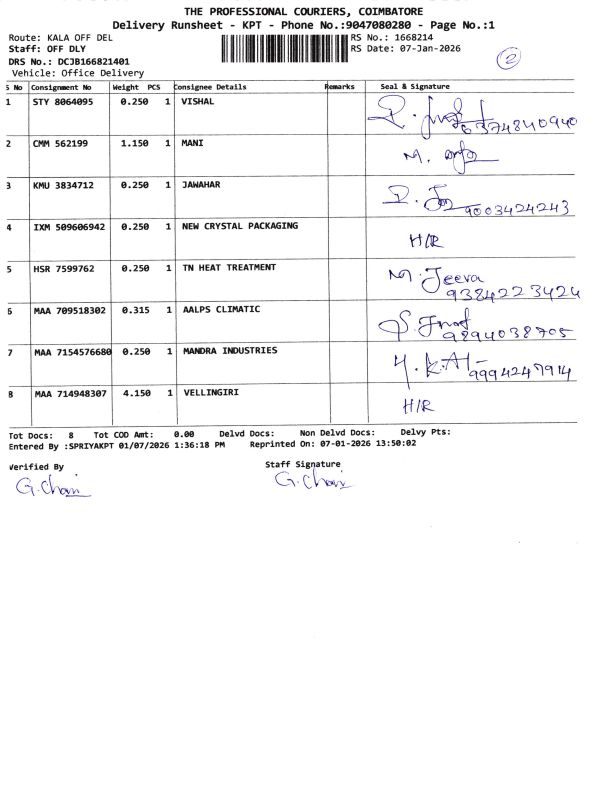 THE PROFESSIONAL COURIERS, COIMBATORE
Delivery Runsheet - KPT - Phone No.:9047080280 - Page No.:1
Route: KALA OFF DEL
RS No.: 1668214
Staff: OFF DLY
RS Date: 07-Jan-2026
2
DRS No.: DCJB166821401
Vehicle: Office Delivery
S No Consignment No Weight PCS Consignee Details Remarks Seal & Signature
1 STY 8064095 0.250 1 VISHAL
6374840940
2 CMM 562199 1.150 1 MANI
M.
3 KMU 3834712 0.250 1 JAWAHAR
9003424243
4 IXM 509606942 0.250 1 NEW CRYSTAL PACKAGING
H/R
5 HSR 7599762 0.250 1 TN HEAT TREATMENT
M. Jeeva
9384223424
6 MAA 709518302 0.315 1 AALPS CLIMATIC
9894038705
7 MAA 7154576680 0.250 1 MANDRA INDUSTRIES
9994247914
8 MAA 714948307 4.150 1 VELLINGIRI
H/R
Tot Docs: 8 Tot COD Amt: 0.00 Delvd Docs: Non Delvd Docs: Delvy Pts:
Entered By :SPRIYAKPT 01/07/2026 1:36:18 PM Reprinted On: 07-01-2026 13:50:02
Verified By Staff Signature